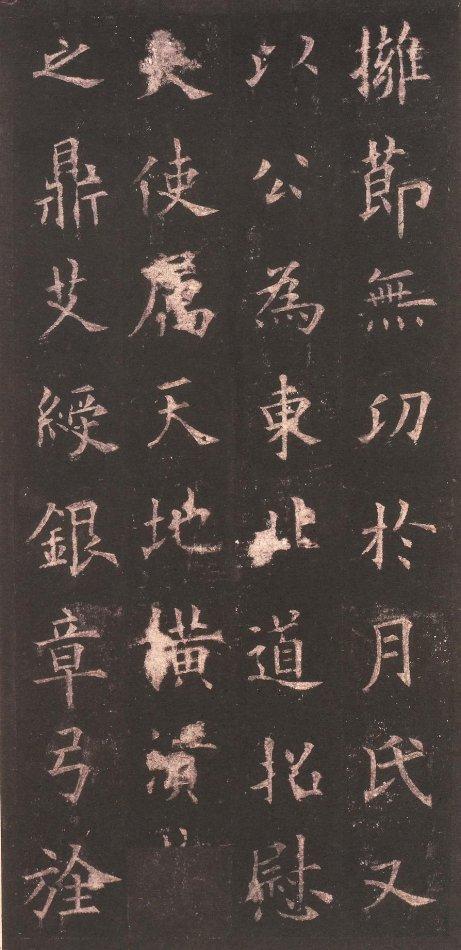 擁節無㓛於月氏又
以公為東北道招慰
大使属天地横潰
之鼎艾綬銀章弓旌